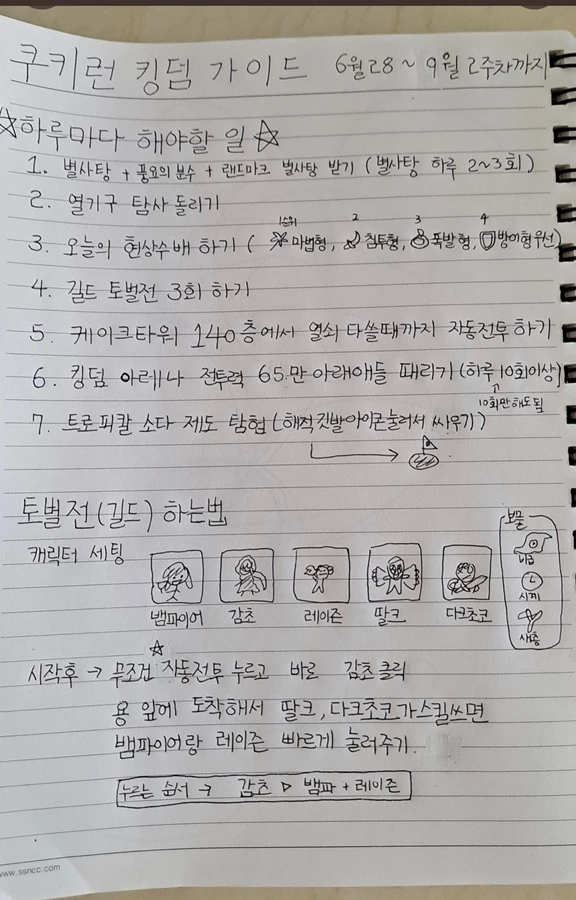 쿠키런 킹덤 가이드 6월28 ~ 9월 2주차까지
☆하루마다 해야할 일☆
1. 별사탕 + 풍요의 분수 + 랜드마크 별사탕 받기 (별사탕 하루 2~3회)
2. 열기구 탐사 돌리기
1순위 2 3 4
3. 오늘의 현상수배 하기 ( 마법형, 침투형, 폭발형, 방어형우선)
4. 길드 토벌전 3회 하기
5. 케이크타워 140층에서 열쇠 다쓸때까지 자동전투 하기
6. 킹덤 아레나 전투력 65만 아래애들 때리기 (하루 10회이상)
10회만해도 됨
7. 트로피칼 소다 제도 탐험 (해적 깃발아이콘눌러서 싸우기)
토벌전(길드) 하는법
보물
캐릭터 세팅
뱀파이어 감초 레이즌 딸크 다크초코
시계
시작후 → 무조건 ☆자동전투 누르고 바로 감초 클릭
용 앞에 도착해서 딸크, 다크초코가스킬쓰면
뱀파이어랑 레이즌 빠르게 눌러주기.
누르는 순서 → 감초 ▷ 뱀파 + 레이즌
www.ssncc.com